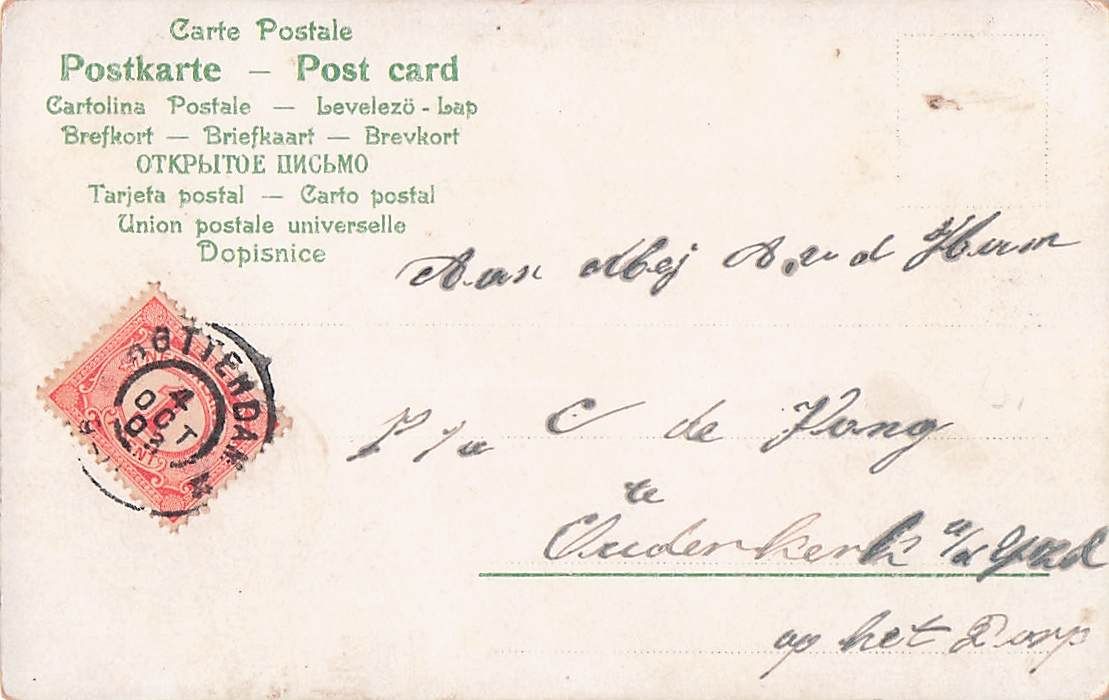 Carte Postale
Postkarte – Post card
Cartolina Postale — Levelezö - Lap
Brefkort — Briefkaart — Brevkort
ОТКРЫТОЕ ПИСЬМО
Tarjeta postal — Carto postal
Union postale universelle
Dopisnice
Aan Mej A. v d Ham
ROTTERDAM
4
OCT
4
P/a C de Jong
te
Ouderkerk a/d
op het Dorp